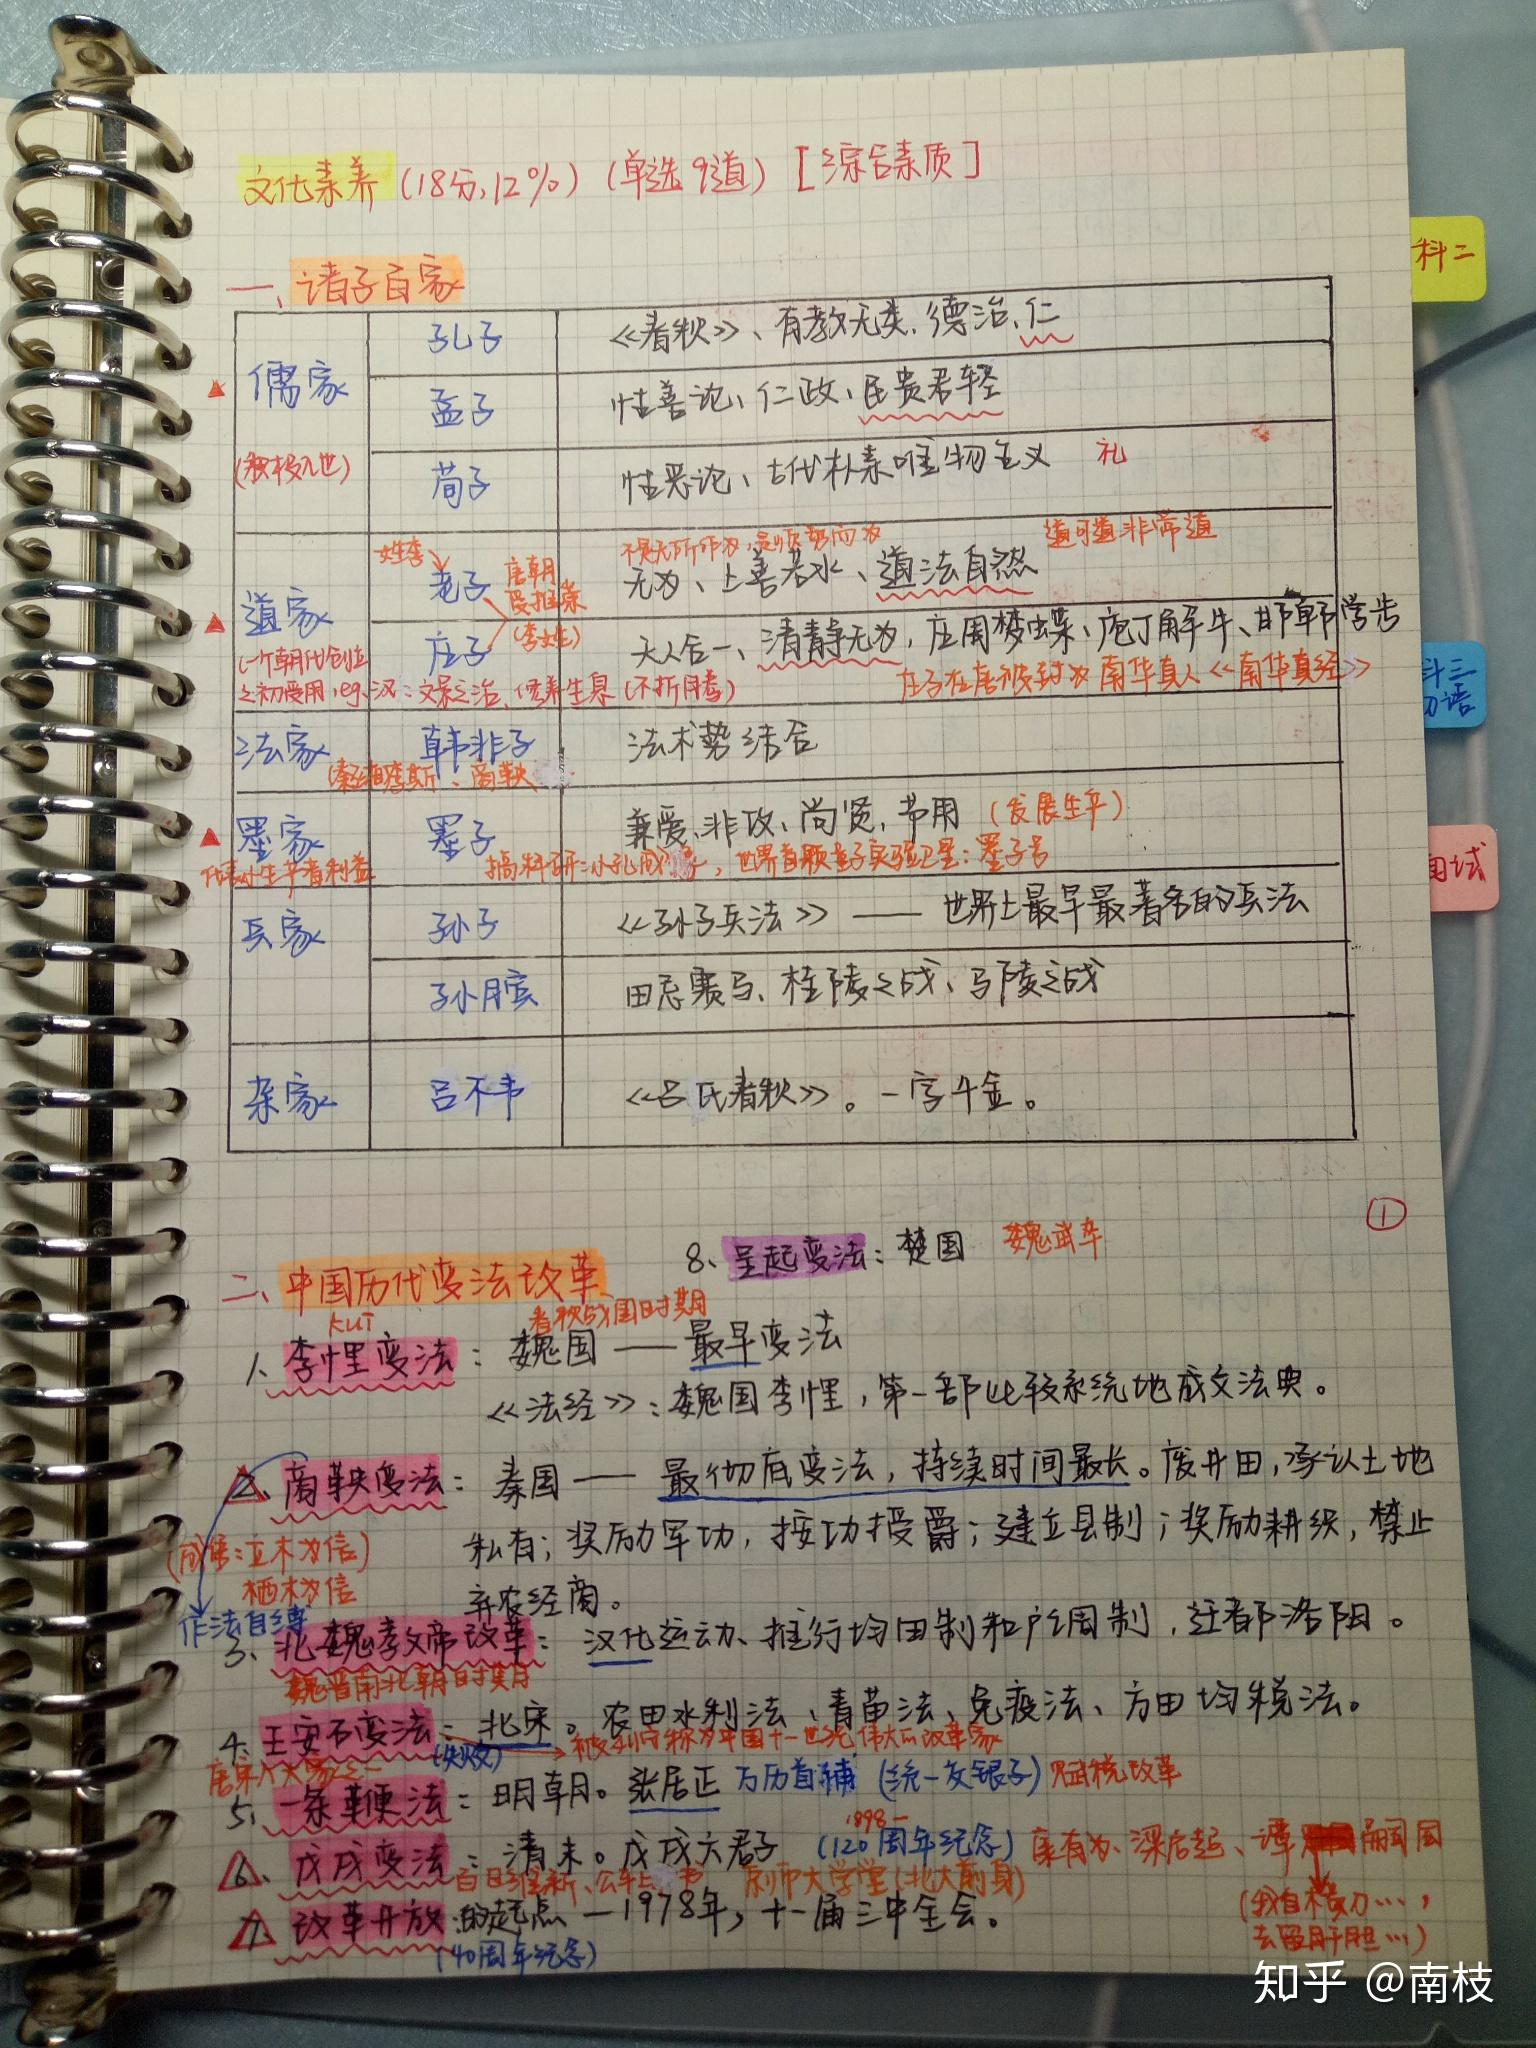 文化素养(18分,12%)(单选9道)[综合素质]
科二
一、诸子百家
儒家
(积极入世)
孔子
《春秋》、有教无类、德治、仁
孟子
性善论、仁政、民贵君轻
荀子
性恶论、古代朴素唯物主义 礼
道家
(一个朝代创立
之初受用,eg.汉:文景之治、休养生息(不折腾)
姓李
老子
唐朝
受推崇
(李姓)
不是无所作为,是顺势而为
道可道非常道
无为、上善若水、道法自然
庄子
天人合一、清静无为,庄周梦蝶、庖丁解牛、邯郸学步
庄子在唐被封为南华真人《南华真经》
科三
法家
韩非子
法术势结合
李斯、商鞅
墨家
代表小生产者利益
墨子
兼爱、非攻、尚贤、节用(发展生产)
搞科研:小孔成像,世界首颗量子实验卫星:墨子号
兵家
孙子
《孙子兵法》——世界上最早最著名的兵法
孙膑
田忌赛马、桂陵之战、马陵之战
杂家
吕不韦
《吕氏春秋》。一字千金。
①
8、吴起变法:楚国 魏武卒
二、中国历代变法改革
kuī
春秋战国时期
1、李悝变法:魏国——最早变法
《法经》:魏国李悝,第一部比较系统地成文法典。
2、商鞅变法:秦国——最彻底变法,持续时间最长。废井田,承认土地
私有;奖励军功,按功授爵;建立县制;奖励耕织,禁止
弃农经商。
(成语:立木为信)
作法自缚
3、北魏孝文帝改革:汉化运动、推行均田制和户调制,迁都洛阳。
魏晋南北朝时期
4、王安石变法:北宋。农田水利法、青苗法、免疫法、方田均税法。
(失败)
被列宁称为中国十一世纪伟大的改革家
唐宋八大家之一
5、一条鞭法:明朝。张居正 万历首辅(统一收银子)赋税改革
1898—
6、戊戌变法:清末。戊戌六君子(120周年纪念)康有为、梁启超、谭嗣同
百日维新、公车上书 京师大学堂(北大前身)
(我自横刀…,
去留肝胆…)
7、改革开放的起点—1978年,十一届三中全会。
(40周年纪念)
知乎 @南枝